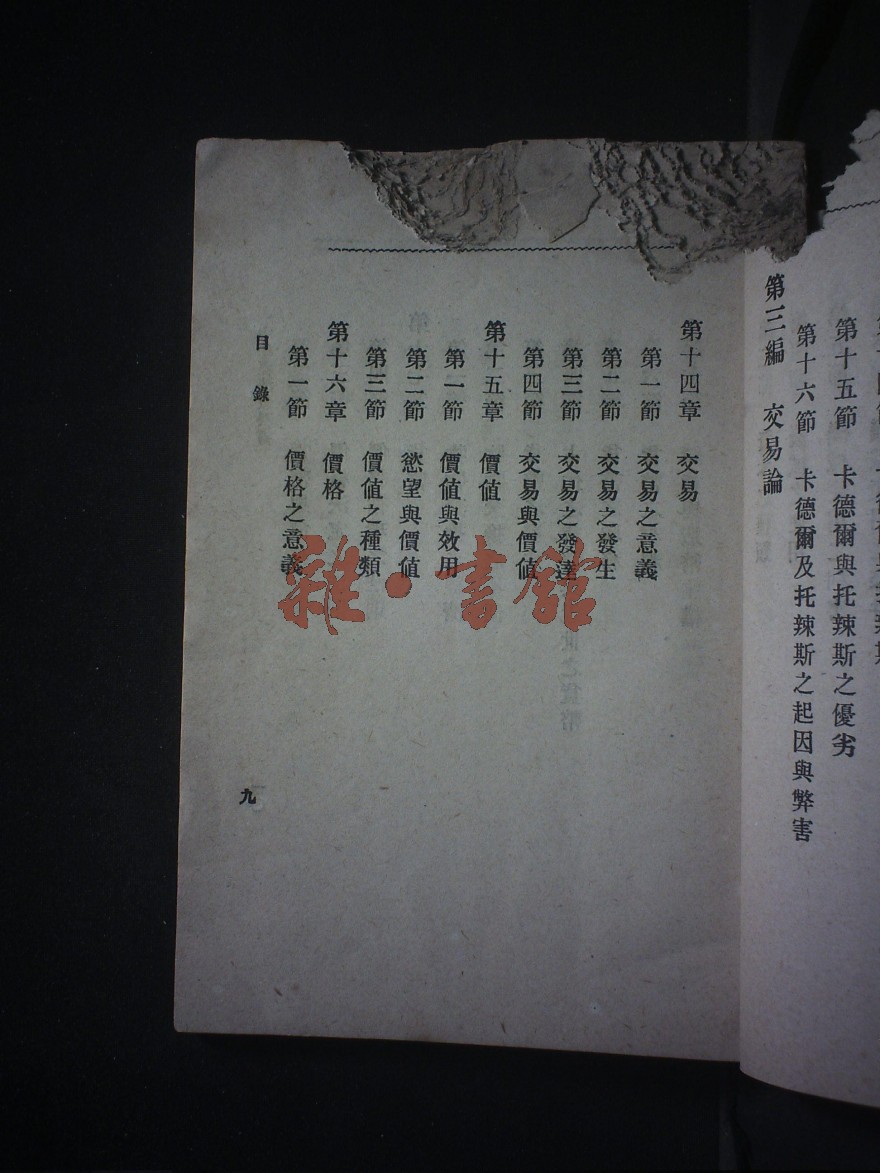 第十五節　卡德爾與托辣斯之優劣
第十六節　卡德爾及托辣斯之起因與弊害
第三編　交易論
第十四章　交易
第一節　交易之意義
第二節　交易之發生
第三節　交易之發達
第四節　交易與價值
第十五章　價值
第一節　價值與效用
第二節　慾望與價值
第三節　價值之種類
第十六章　價格
第一節　價格之意義
目錄
九
雜·書館